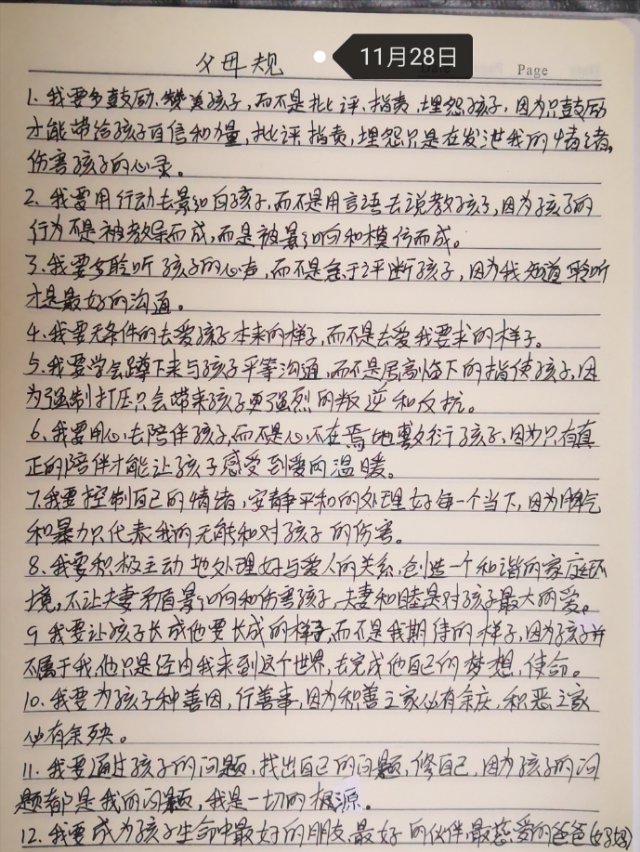 父母规
11月28日
Page
1.我要多鼓励、赞美孩子，而不是批评、指责、埋怨孩子，因为只鼓励
才能带给孩子自信和力量，批评、指责，埋怨只是在发泄我的情绪，
伤害孩子的心灵。
2.我要用行动去影响孩子，而不是用言语去说教孩子，因为孩子的
行为不是被教导而成，而是被影响和模仿而成。
3.我要多聆听孩子的心声，而不是急于评断孩子，因为我知道聆听
才是最好的沟通。
4.我要无条件的去爱孩子本来的样子，而不是去爱我要求的样子。
5.我要学会蹲下来与孩子平等沟通，而不是居高临下的指使孩子，因
为强制打压只会带来孩子更强烈的叛逆和反抗。
6.我要用心去陪伴孩子，而不是心不在焉地敷衍孩子，因为只有真
正的陪伴才能让孩子感受到爱的温暖。
7.我要控制自己的情绪，安静平和的处理好每一个当下，因为脾气
和暴力只代表我的无能和对孩子的伤害。
8.我要积极主动地处理好与爱人的关系，创造一个和谐的家庭环
境，不让夫妻矛盾影响和伤害孩子，夫妻和睦是对孩子最大的爱。
9.我要让孩子长成他要长成的样子，而不是我期待的样子，因为孩子并
不属于我，他只是经由我来到这个世界，去完成他自己的梦想，使命。
10.我要为孩子种善因，行善事，因为积善之家必有余庆，积恶之家
必有余殃。
11.我要通过孩子的问题，找出自己的问题，修自己，因为孩子的问
题都是我的问题，我是一切的根源。
12.我要成为孩子生命中最好的朋友，最好的伙伴，最慈爱的爸爸(妈妈)